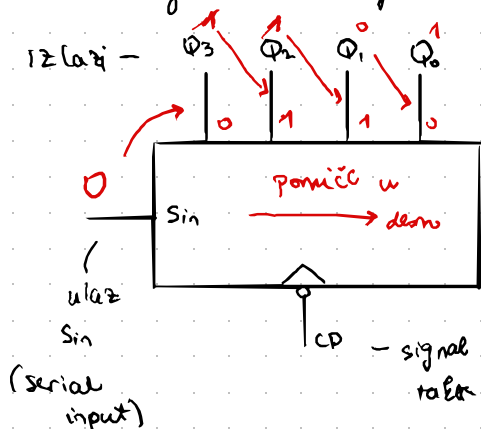 1 1 0 1
Izlazi - Q3 Q2 Q1 Q0
0 1 1 0
0
pomiče u
desno
Sin
ulaz
Sin
(serial
input)
CP
- signal
takta